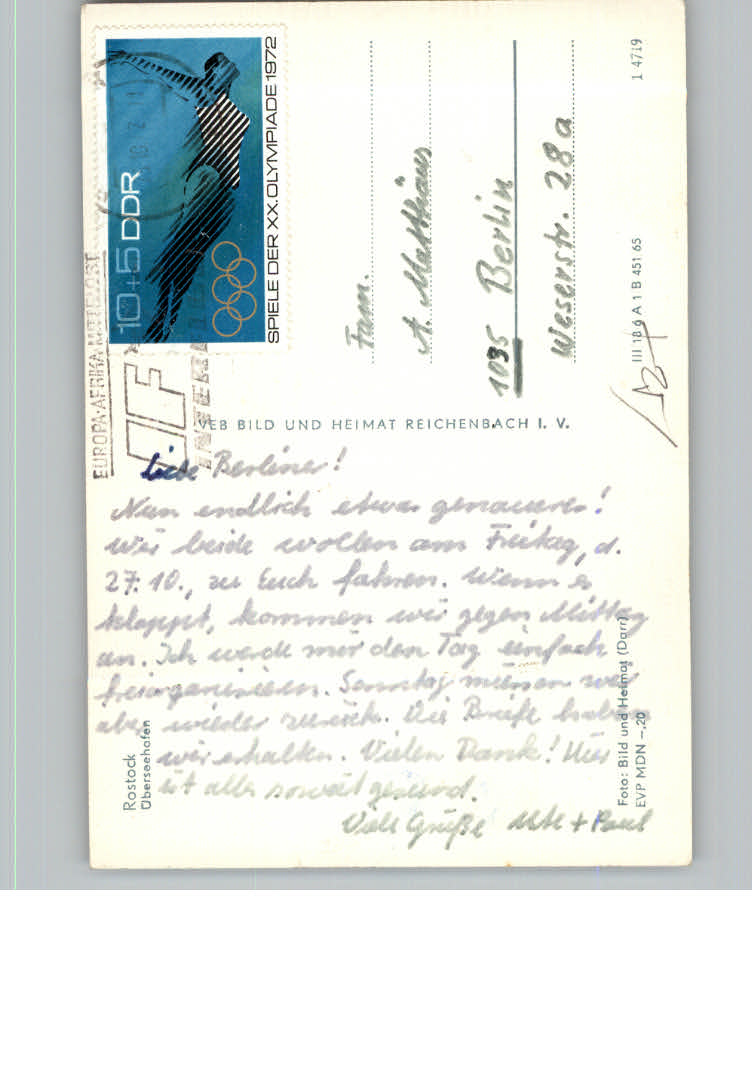 10+5 DDR
SPIELE DER XX. OLYMPIADE 1972
EUROPA-AFRIKA-MITTELOST
1 4719
Fam.
A. Matthäus
1035 Berlin
Weserstr. 28a
III 18 6 A 1 B 451 65
VEB BILD UND HEIMAT REICHENBACH I. V.
Liebe Berliner!
Nun endlich etwas genaueres!
Wir beide wollen am Freitag, d.
27.10., zu Euch fahren. Wenn es
klappt, kommen wir gegen Mittag
an. Ich werde mir den Tag einfach
freiorganisieren. Sonntag müssen wir
aber wieder zurück. Die Briefe haben
wir erhalten. Vielen Dank! Hier
ist alles soweit gesund.
Viele Grüße Ute + Paul
Rostock
Überseehafen
Foto: Bild und Heimat (Darr)
EVP MDN -,20